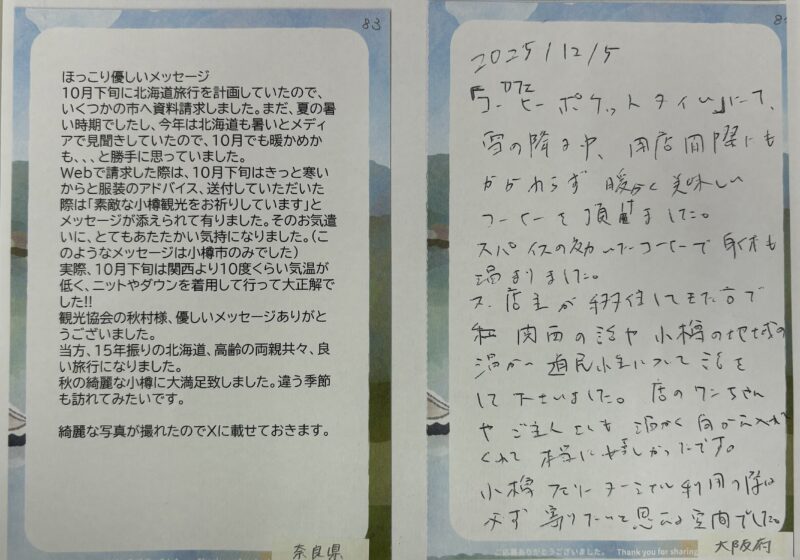 83
ほっこり優しいメッセージ
10月下旬に北海道旅行を計画していたので、
いくつかの市へ資料請求しました。まだ、夏の暑
い時期でしたし、今年は北海道も暑いとメディ
アで見聞きしていたので、10月でも暖かめか
も、、、と勝手に思っていました。
Webで請求した際は、10月下旬はきっと寒い
からと服装のアドバイス、送付していただいた
際は「素敵な小樽観光をお祈りしています」と
メッセージが添えられて有りました。そのお気遣
いに、とてもあたたかい気持になりました。(こ
のようなメッセージは小樽市のみでした)
実際、10月下旬は関西より10度くらい気温が
低く、ニットやダウンを着用して行って大正解で
した!!
観光協会の秋村様、優しいメッセージありがと
うございました。
当方、15年振りの北海道、高齢の両親共々、良
い旅行になりました。
秋の綺麗な小樽に大満足致しました。違う季節
も訪れてみたいです。
綺麗な写真が撮れたのでXに載せておきます。
奈良県
2025/12/5
ポケットタイム」にて、
雪の降る中、閉店間際にも
かかわらず 暖かく美味しい
コーヒーを頂きました。
スパイスの効いたコーヒーで身体も
温まりました。
又、店主が移住してきた方で
関西の話や小樽の地域の
温かい道民性について話を
して下さいました。店のワンちゃん
やご主人さんも温かく向かえ入れて
くれて本当に嬉しかったです。
小樽フェリーターミナル利用の際は
必ず寄りたいと思える空間でした。
ご応募ありがとうございました。 Thank you for sharing
大阪府